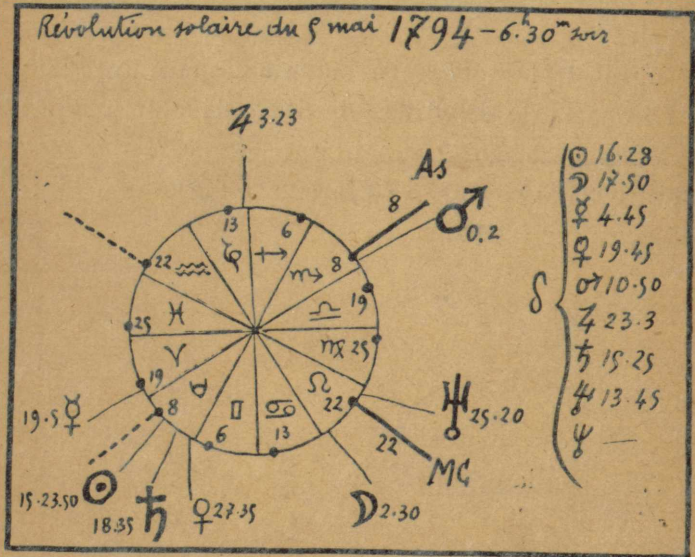 Révolution solaire du 5 mai 1794 - 6.h 30m soir
♃ 3.23
As
8
♂ 0.2
13
6
8
22
♒
♑
♐
♏
19
♎
25
♓
♍ 25
♈
♌
19
♉
♊
♋
22
8
6
13
19.5 ☿
♅ 25.20
22
MC
15.23.50 ☉
18.35 ♄
♀ 27.35
☽ 2.30
δ
☉ 16.28
☽ 17.50
☿ 4.45
♀ 19.45
♂ 10.50
♃ 23.3
♄ 15.25
♅ 13.45
♆ —